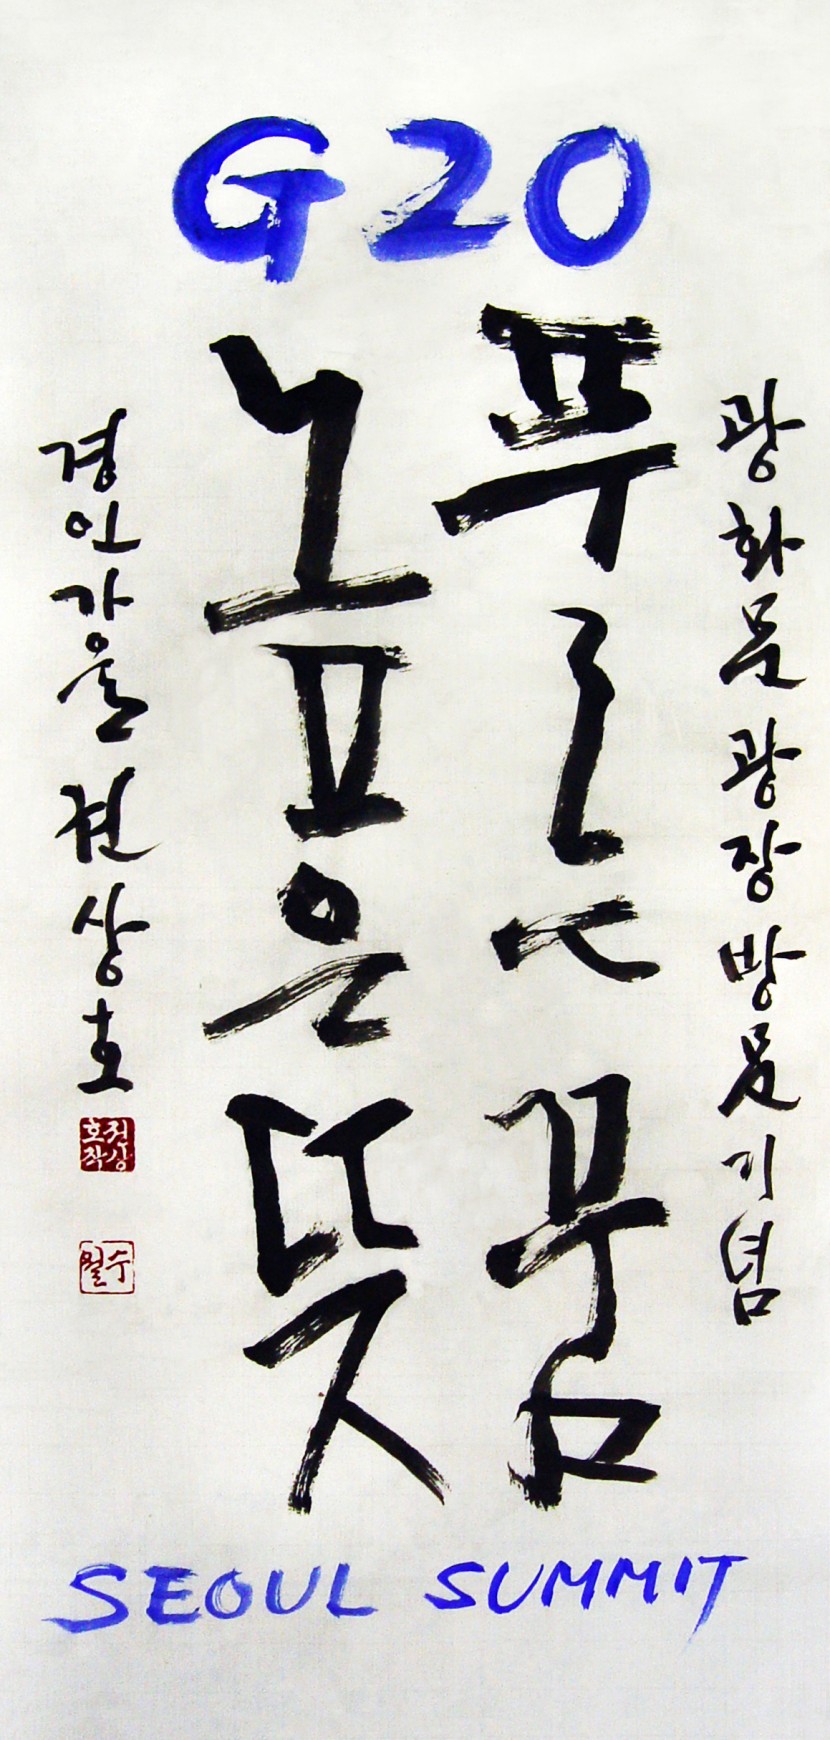 G20
광화문 광장 방문 기념
푸른 꿈
높은 뜻
경인 가을 권상호
권상호작
SEOUL SUMMIT